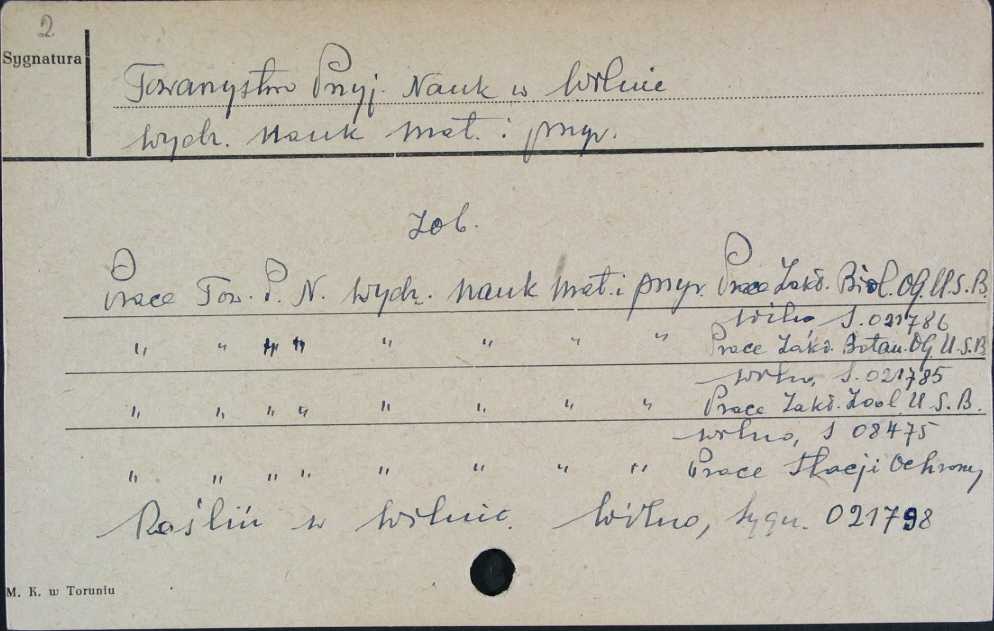 2
Sygnatura
Towarzystwo Przyj. Nauk w Wilnie
Wydz. Nauk Mat. i przyr.
Zob.
Prace Tow. P. N. Wydz. Nauk Mat. i przyr. Prace Zakł. Biol. OG. U.S.B.
Wilno S. 021786
" " " " " " " " Prace Zakł. Botan. OG U.S.B
Wilno, S. 021785
" " " " " " " " Prace Zakł. Zool. U.S.B.
Wilno, S 08475
" " " " " " " " Prace Stacji Ochrony
Roślin w Wilnie. Wilno, Sygn. 021798
M. K. w Toruniu